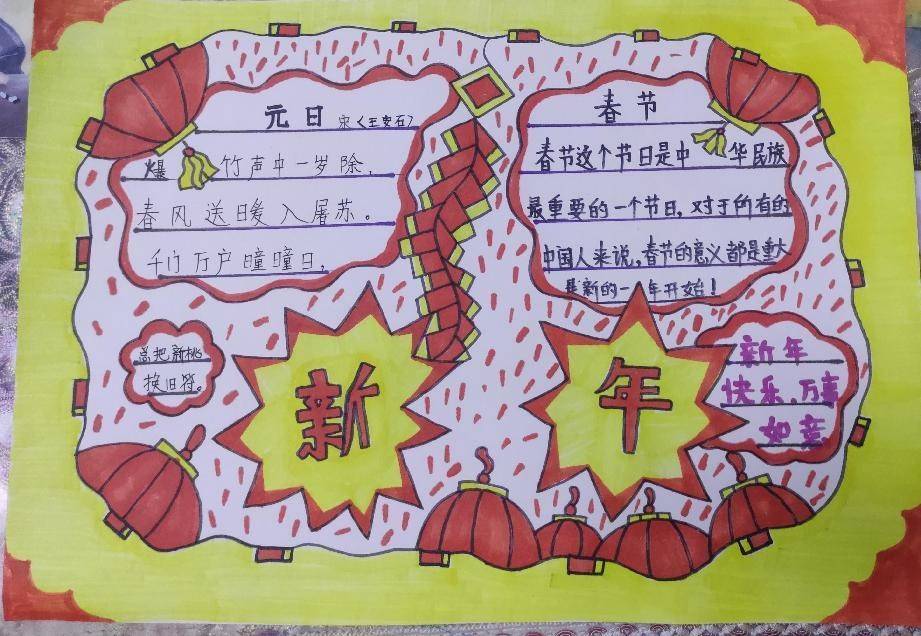 元日 宋〈王安石〉
爆竹声中一岁除,
春风送暖入屠苏。
千门万户瞳瞳日,
把新桃
换旧符。
春节
春节这个节日是中华民族
最重要的一个节日,对于所有的
中国人来说,春节的意义都是重大
是新的一年开始!
新年
新年
快乐,万事
如意